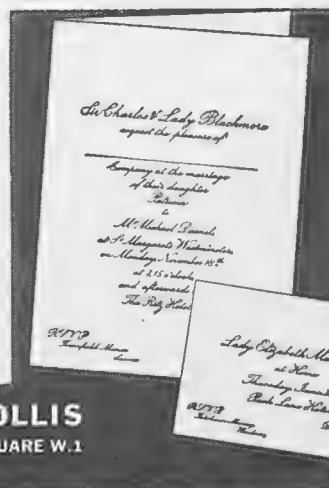 Sir Charles & Lady Blackmore
request the pleasure of
Company at the marriage
of their daughter
Patricia
to
Mr. Michael
at St Margarets Westminster
on Monday November 18th
at 2.15 o'clock
and afterwards
The Ritz Hotel
R.S.V.P.
Lady Elizabeth
at Home
Thursday June
Park Lane Hotel
R.S.V.P.
OLLIS
UARE W.1